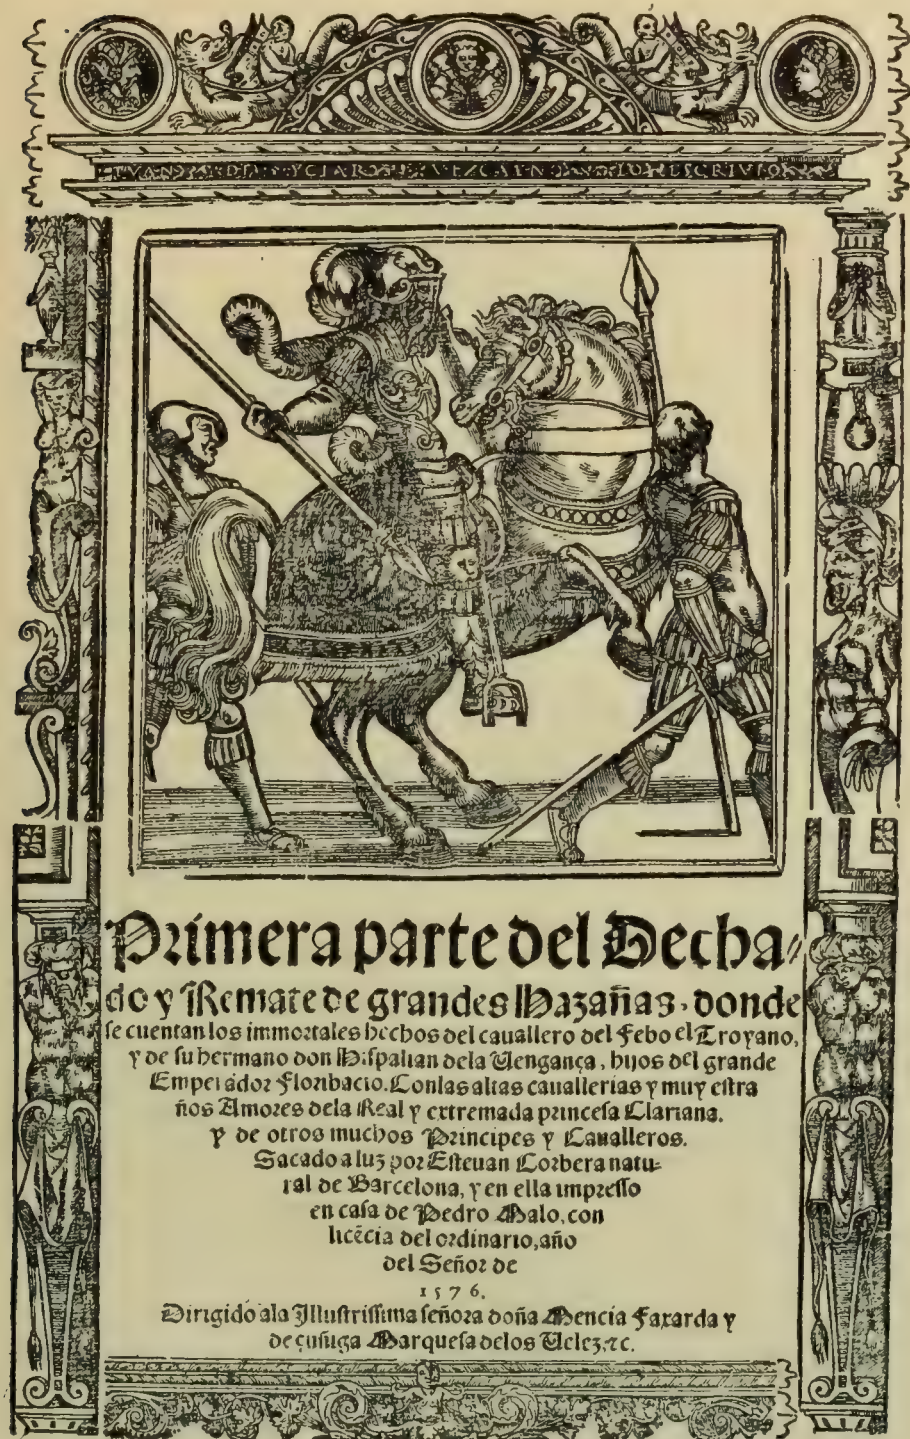 IVAN DE YCIAR VIZCAYNO LO ESCRIVIO
Primera parte del Decha/
do y Remate de grandes Hazañas, donde
se cuentan los immortales hechos del cauallero del Febo el Troyano,
y de su hermano don Hispalian dela Uengança, hijos del grande
Emperador Floribacio. Conlas altas cauallerias y muy estra
ños Amores dela Real y extremada princesa Clariana.
y de otros muchos Principes y Caualleros.
Sacado a luz por Esteuan Corbera natu-
ral de Barcelona, y en ella impresso
en casa de Pedro Malo, con
licẽcia del ordinario, año
del Señor de
1576.
Dirigido ala Illustrissima señora doña Mencia Faxarda y
de çuñiga Marquesa delos Uelez.⁊c.